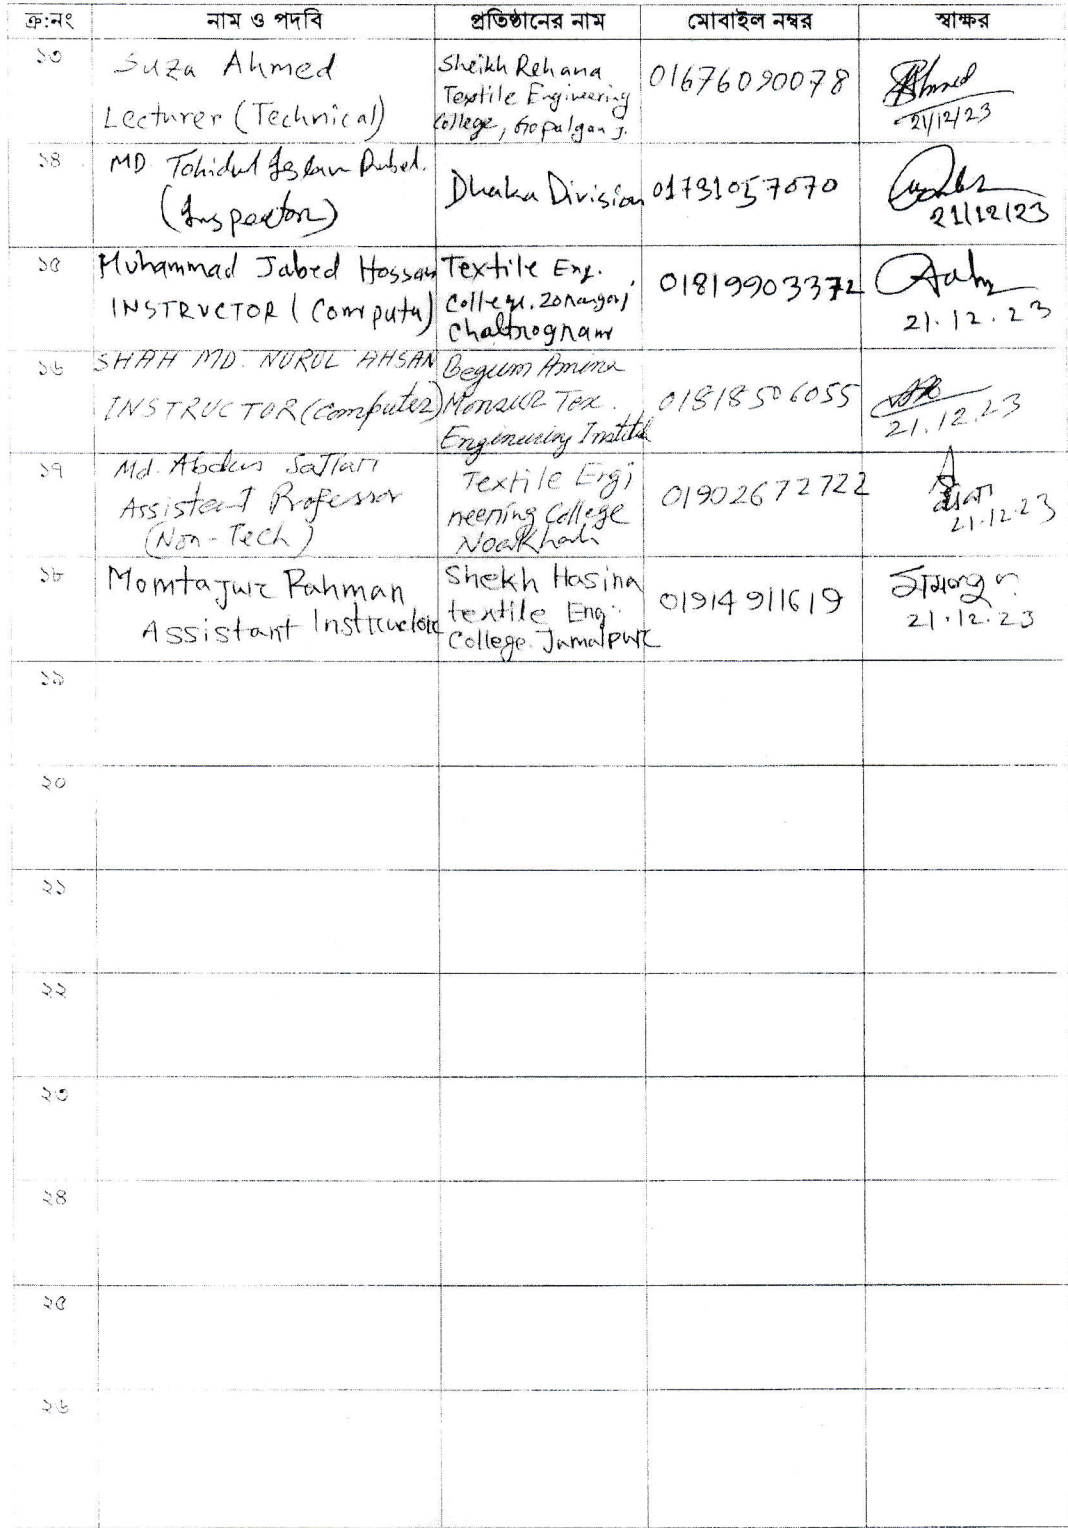 ক্র:নং নাম ও পদবি প্রতিষ্ঠানের নাম মোবাইল নম্বর স্বাক্ষর
১৩
Suza Ahmed
Lecturer (Technical)
Sheikh Rehana
Textile Engineering
College, Gopalganj.
01676090078
Ahmed
21/12/23
১৪
MD. Tohidul Islam Rubel.
(Inspector)
Dhaka Division
01731057070
21/12/23
১৫
Muhammad Jabed Hossain
INSTRUCTOR (Computer)
Textile Eng.
College. Zorargonj
Chattogram
01819903372
21.12.23
১৬
SHAH MD. NURUL AHSAN
INSTRUCTOR (Computer)
Begum Amina
Monsur Tex.
Engineering Institute
01818506055
21.12.23
১৭
Md. Abdus Sattar
Assistant Professor
(Non-Tech)
Textile Engi
neering College
Noakhali
01902672722
21.12.23
১৮
Momtajur Rahman
Assistant Instructor
Shekh Hasina
textile Eng.
College. Jamalpur
01914911619
21.12.23
১৯
২০
২১
২২
২৩
২৪
২৫
২৬